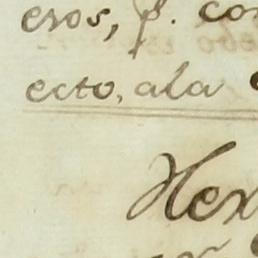 eros, p. con
ecto, ala
Hex